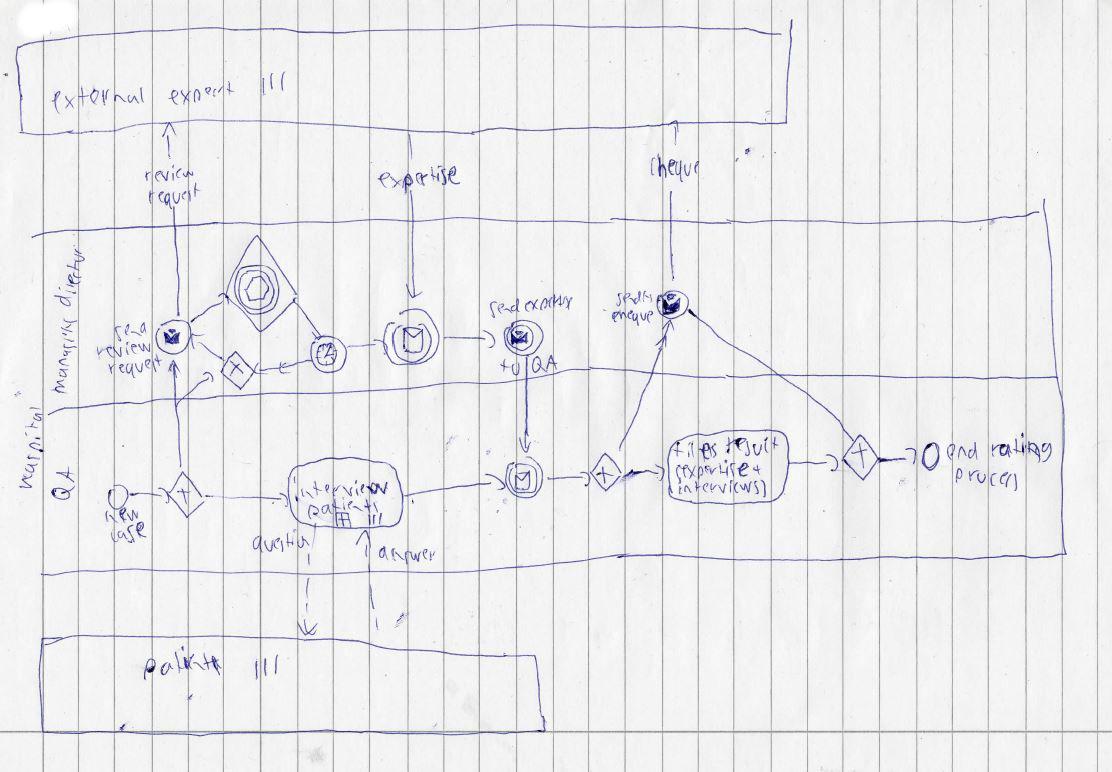 external expert III
review
request
expertise
cheque
managing director
send
review
request
send expertise
to QA
sends
cheque
hospital
QA
new
case
interview
patients
III
files result
(expertise +
interviews)
end rating
process
question
answer
patients III